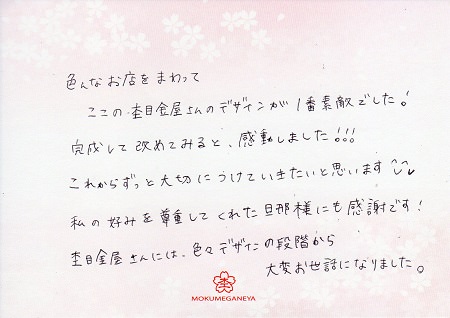 色んなお店をまわって
ここの杢目金屋さんのデザインが1番素敵でした！
完成して改めてみると、感動しました!!!
これからずっと大切につけていきたいと思います^^
私の好みを尊重してくれた旦那様にも感謝です！
杢目金屋さんには、色々デザインの段階から
大変お世話になりました。
杢
MOKUMEGANEYA